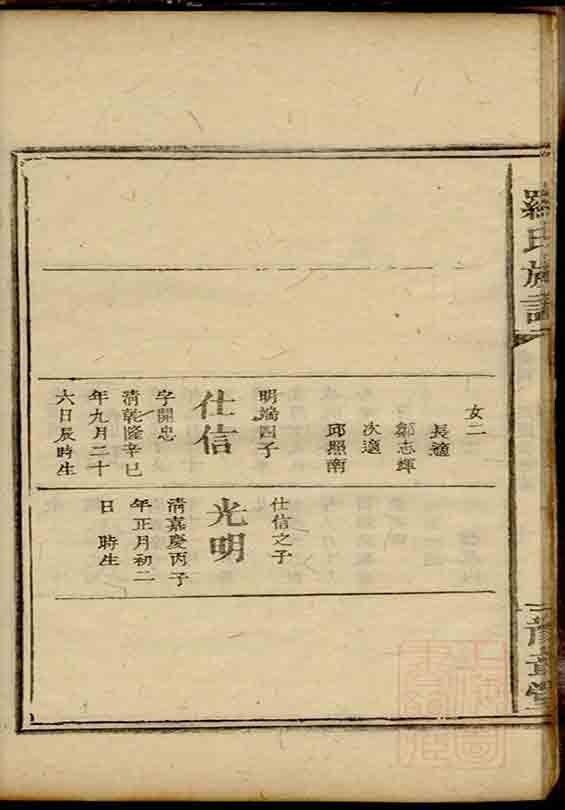 羅氏族譜
豫章堂
女二
長適
鄒志輝
次適
邱照南
明端四子
仕信
字開忠
清乾隆辛巳
年九月二十
六日辰時生
仕信之子
光明
清嘉慶丙子
年正月初二
日 時生